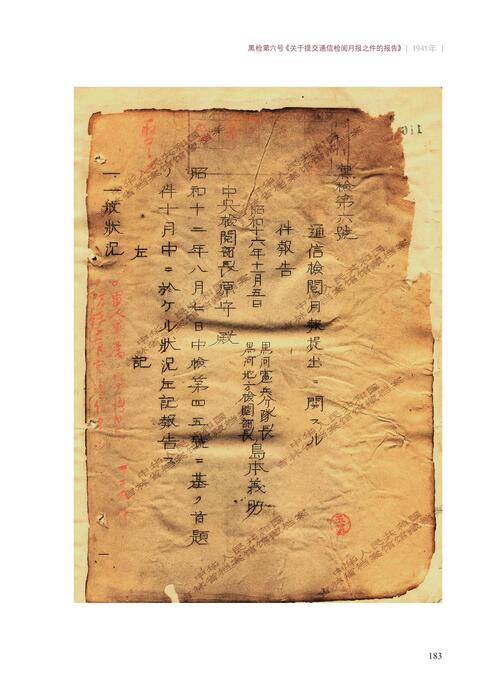 黑检第六号《关于提交通信检阅月报之件的报告》 | 1941年 |
黒檢第六號
通信檢閲月報提出ニ関スル
件報告
昭和十六年十一月五日
黒河憲兵分隊長
黒河地方檢閲部長 島本義助
中央檢閲部長 原守 殿
昭和十二年八月七日中檢第四五號ニ基ク首題
ノ件十月中ニ於ケル状況左記報告ス
左 記
一、一般状況
中华人民共和国
吉林省档案馆馆藏档案
183